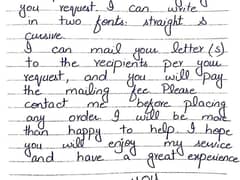 you request. I can write
in two fonts: straight &
cursive
I can mail your letter(s)
to the recipients per your
request, and you will pay
the mailing fee. Please
contact me before placing
any order. I will be more
than happy to help. I hope
you will enjoy my service
and have a great experience
you